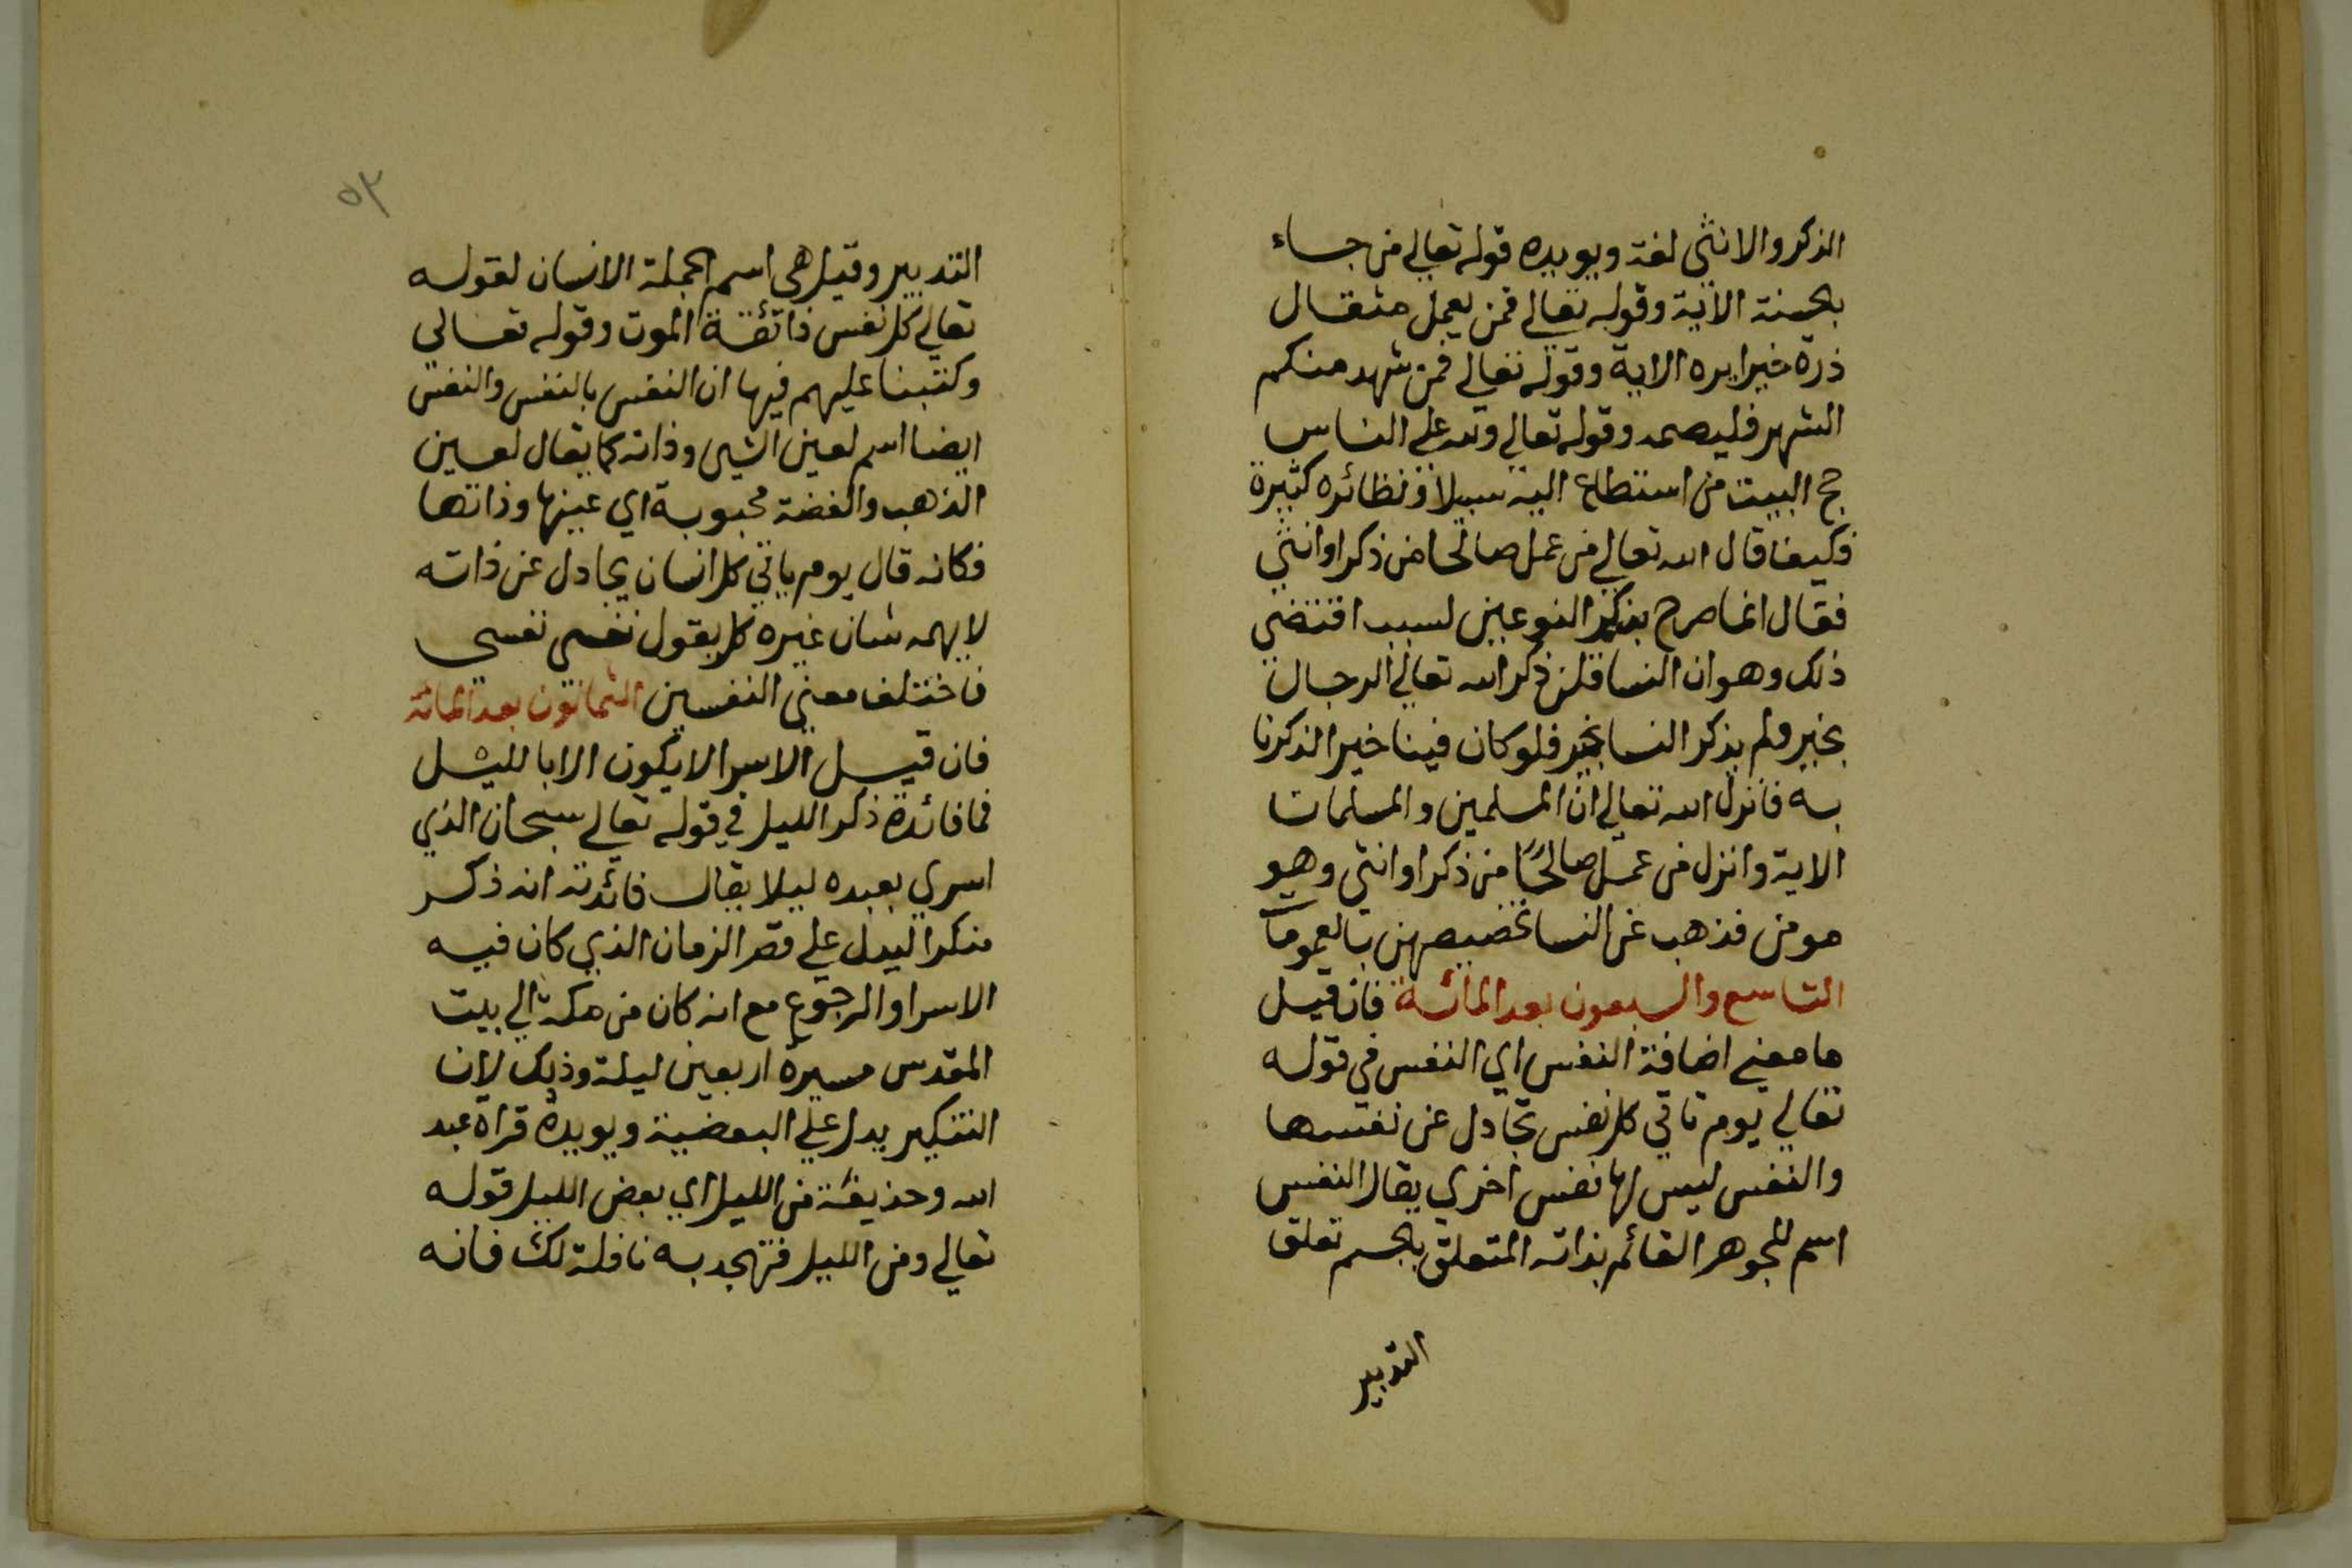 الذكر والانثي لغة ويويده قوله تعالي من جساء
بحسنة الاية وقوله تعالي فمن يعمل مثقال
ذرة خيرا يره الاية وقوله تعالي فمن شهد منكم
الشهر فليصمه وقوله تعالي ولله علي الناس
حج البيت من استطاع اليه سبيلا ونظائره كثيرة
فكيف قال الله تعالي من عمل صالحا من ذكر او انثي
فقال انما صرح بذكر النوعين لسبب اقتضي
ذلك وهو ان النسا قلن ذكر الله تعالي الرجال
بخير ولم يذكر النسا بخير فلو كان فينا خير الذكرنا
به فانزل الله تعالي ان المسلمين والمسلمات
الاية وانزل من عمل صالحًا من ذكر او انثي وهو
مومن فذهب عن النسا تخصيصهن بالعمومات
التاسع والسبعون بعد المائة فان قيل
ما معني اضافة النفس الي النفس في قوله
تعالي يوم تاتي كل نفس تجادل عن نفسها
والنفس ليس لها نفس اخري يقال النفس
اسم للجوهر القائم بذاته المتعلق بالجسم تعلق
التدبير
٥٣
التدبير وقيل هي اسم لجملة الانسان لقوله
تعالي كل نفس ذائقة الموت وقوله تعالي
وكتبنا عليهم فيها ان النفس بالنفس والنفس
ايضا اسم لعين الشي وذاته كما يقال لعين
الذهب والفضة محبوبة اي عينها وذاتها
فكانه قال يوم ياتي كل انسان يجادل عن ذاته
لا يهمه شان غيره كل يقول نفسي نفسي
فاختلف معني النفسين الثمانون بعد المائة
فان قيل الاسرا لا يكون الا بالليل
فما فائدة ذكر الليل في قوله تعالي سبحان الذي
اسري بعبده ليلا يقال فائدته انه ذكر
منكرا ليدل علي قصر الزمان الذي كان فيه
الاسرا والرجوع مع انه كان من مكة الي بيت
المقدس مسيرة اربعين ليلة وذلك لان
التنكير يدل علي البعضية ويويده قراة عبد
الله وحذيفة من الليل اي بعض الليل قوله
تعالي ومن الليل فتهجد به نافلة لك فانه